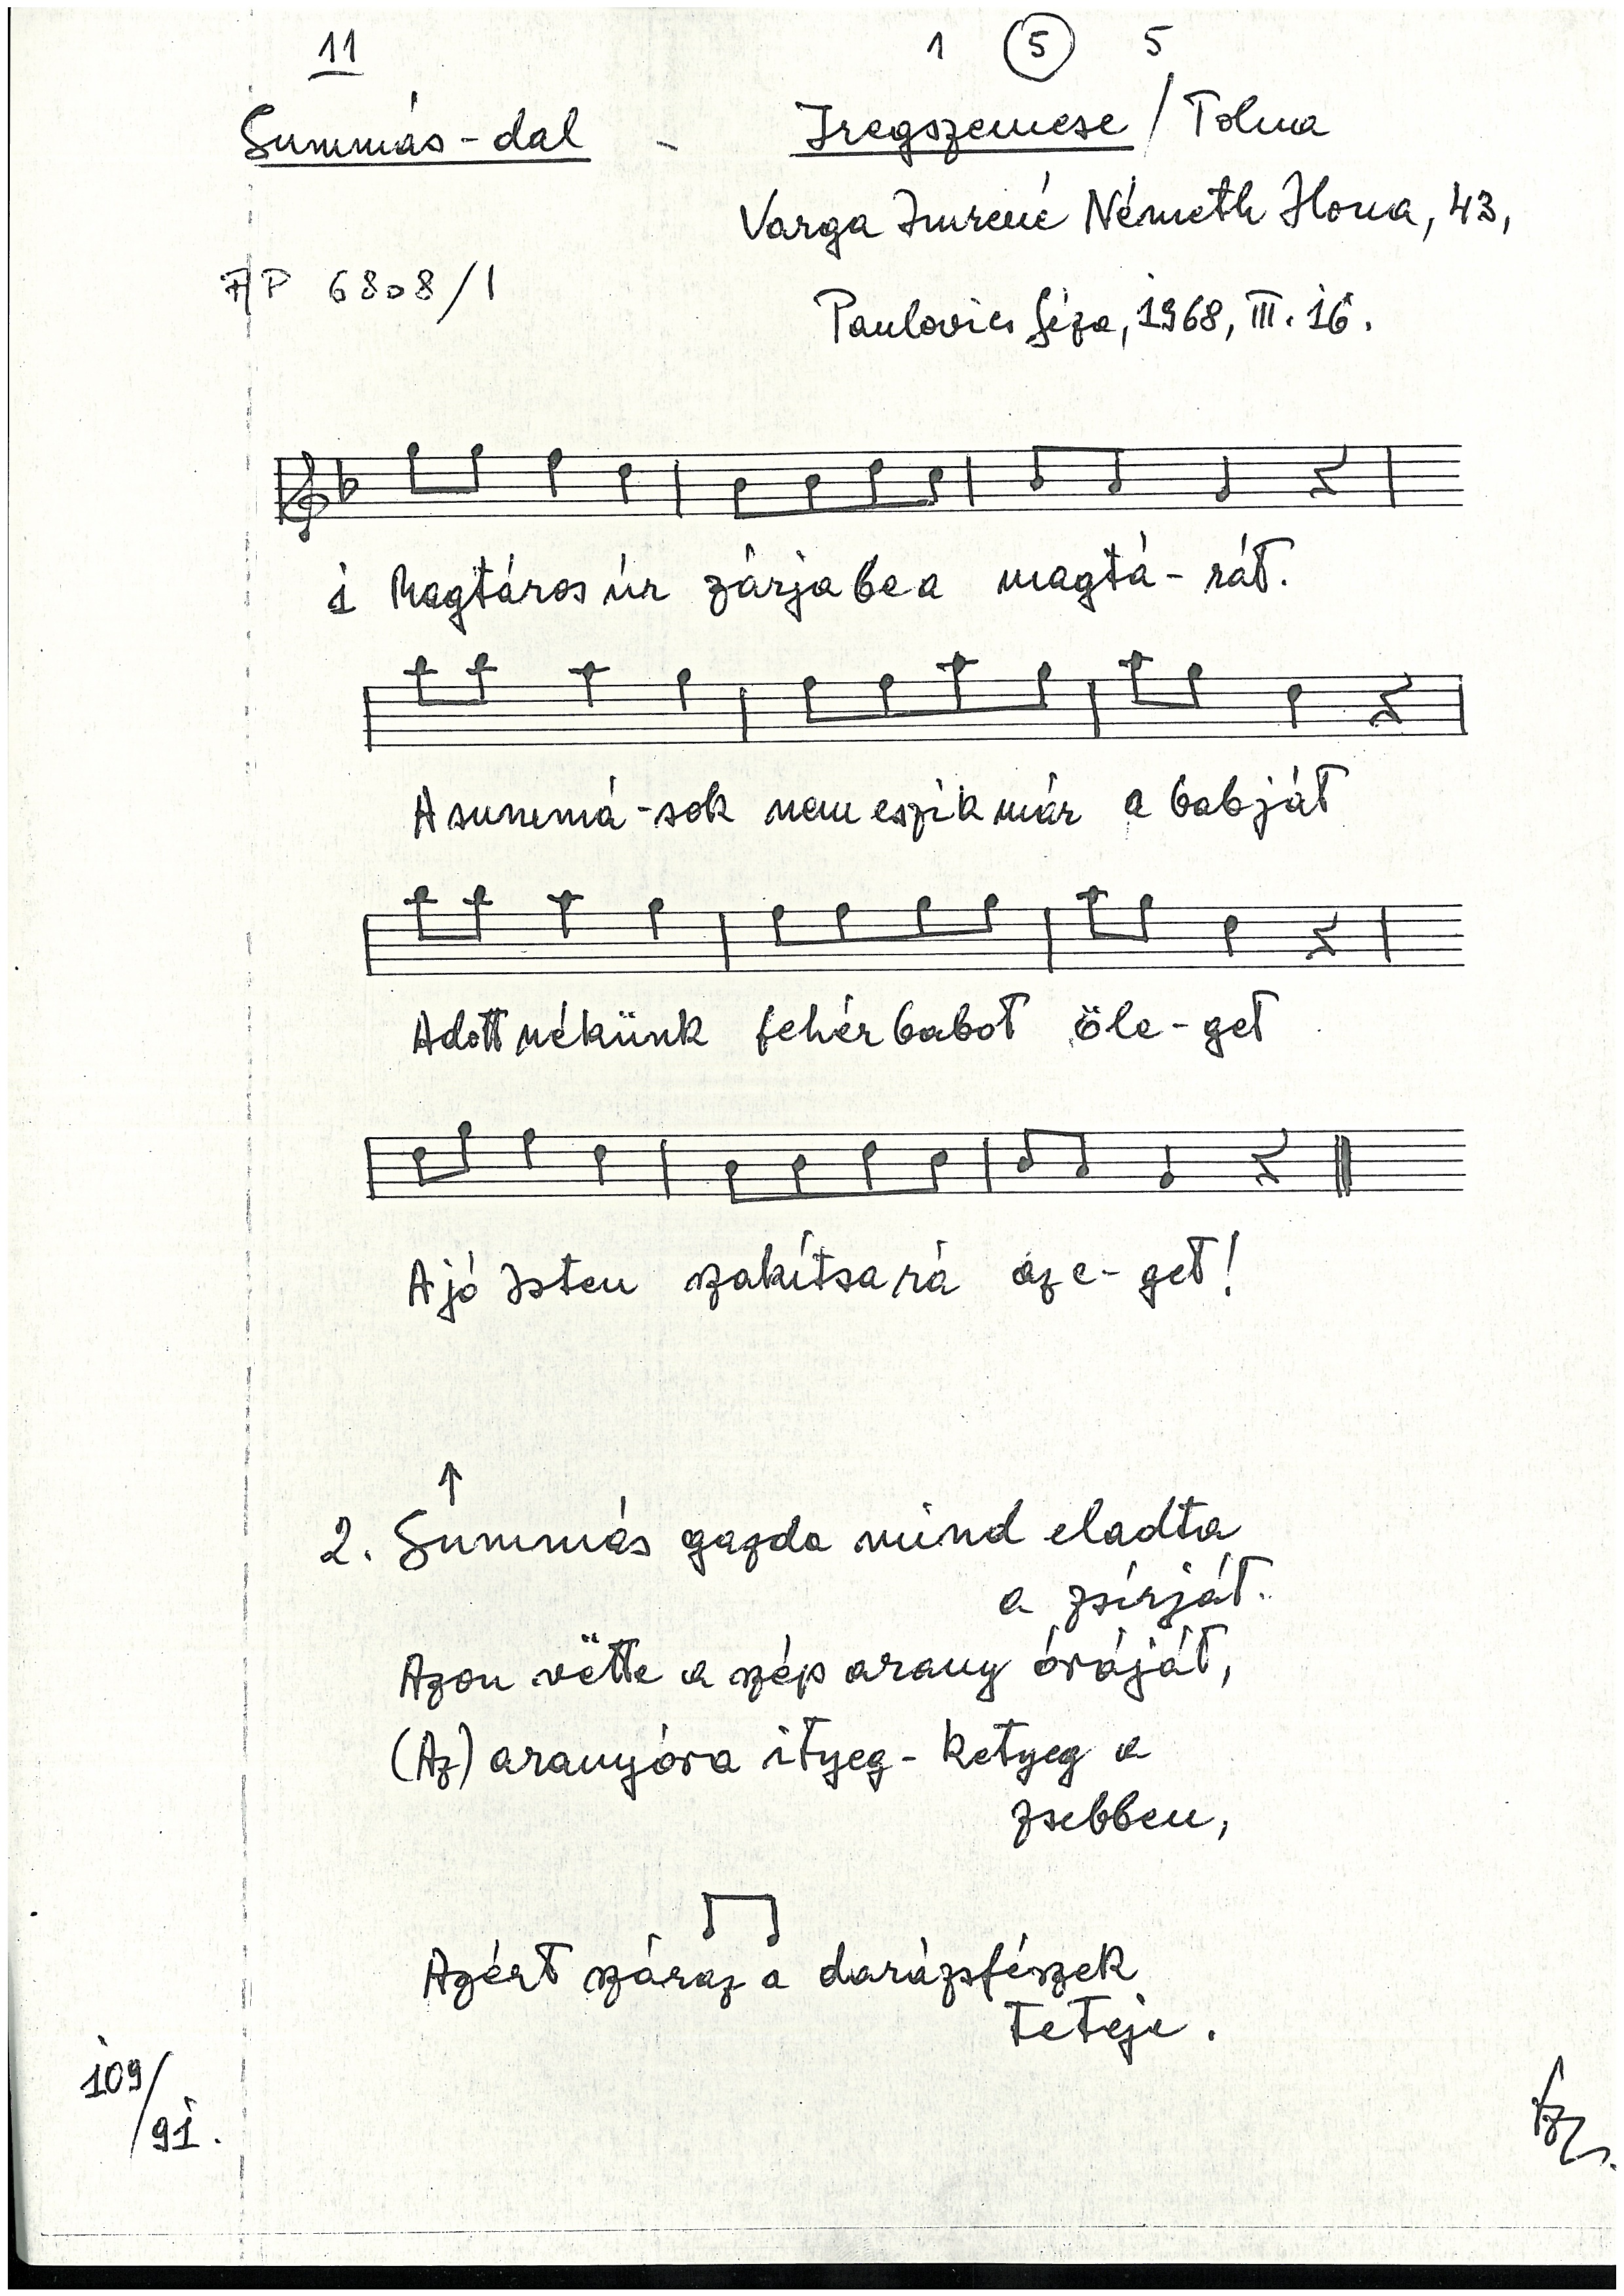 11 1 5 5
Summás-dal - Iregszemcse / Tolna
Varga Imréné Németh Ilona, 43,
AP 6808/1
Paulovics Géza, 1968, III. 16.
1 Magtáros úr zárja be a magtá-rát.
A summá-sok nem eszik már a babját
Adott nékünk fehér babot öle-get
A jó Isten szakítsa rá az e-get!
↑
2. Summás gazda mind eladta
a zsírját.
Azon vëtte a szép arany óráját,
(Az) aranyóra ityeg-ketyeg a
zsebben,
Azért száraz a darázsfészek
teteje.
109/91.